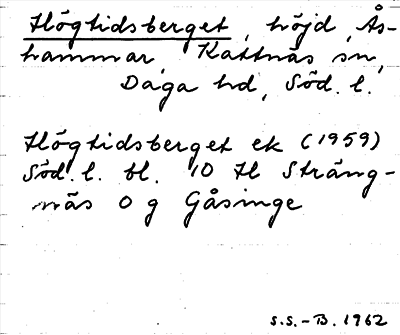 Högtidsberget, höjd, Ås-
hammar, Kattnäs sn,
Daga hd, Söd. l.
Högtidsberget ek (1959)
Söd. l. bl. 10 H Sträng-
näs O g Gåsinge
S.S.-B. 1962